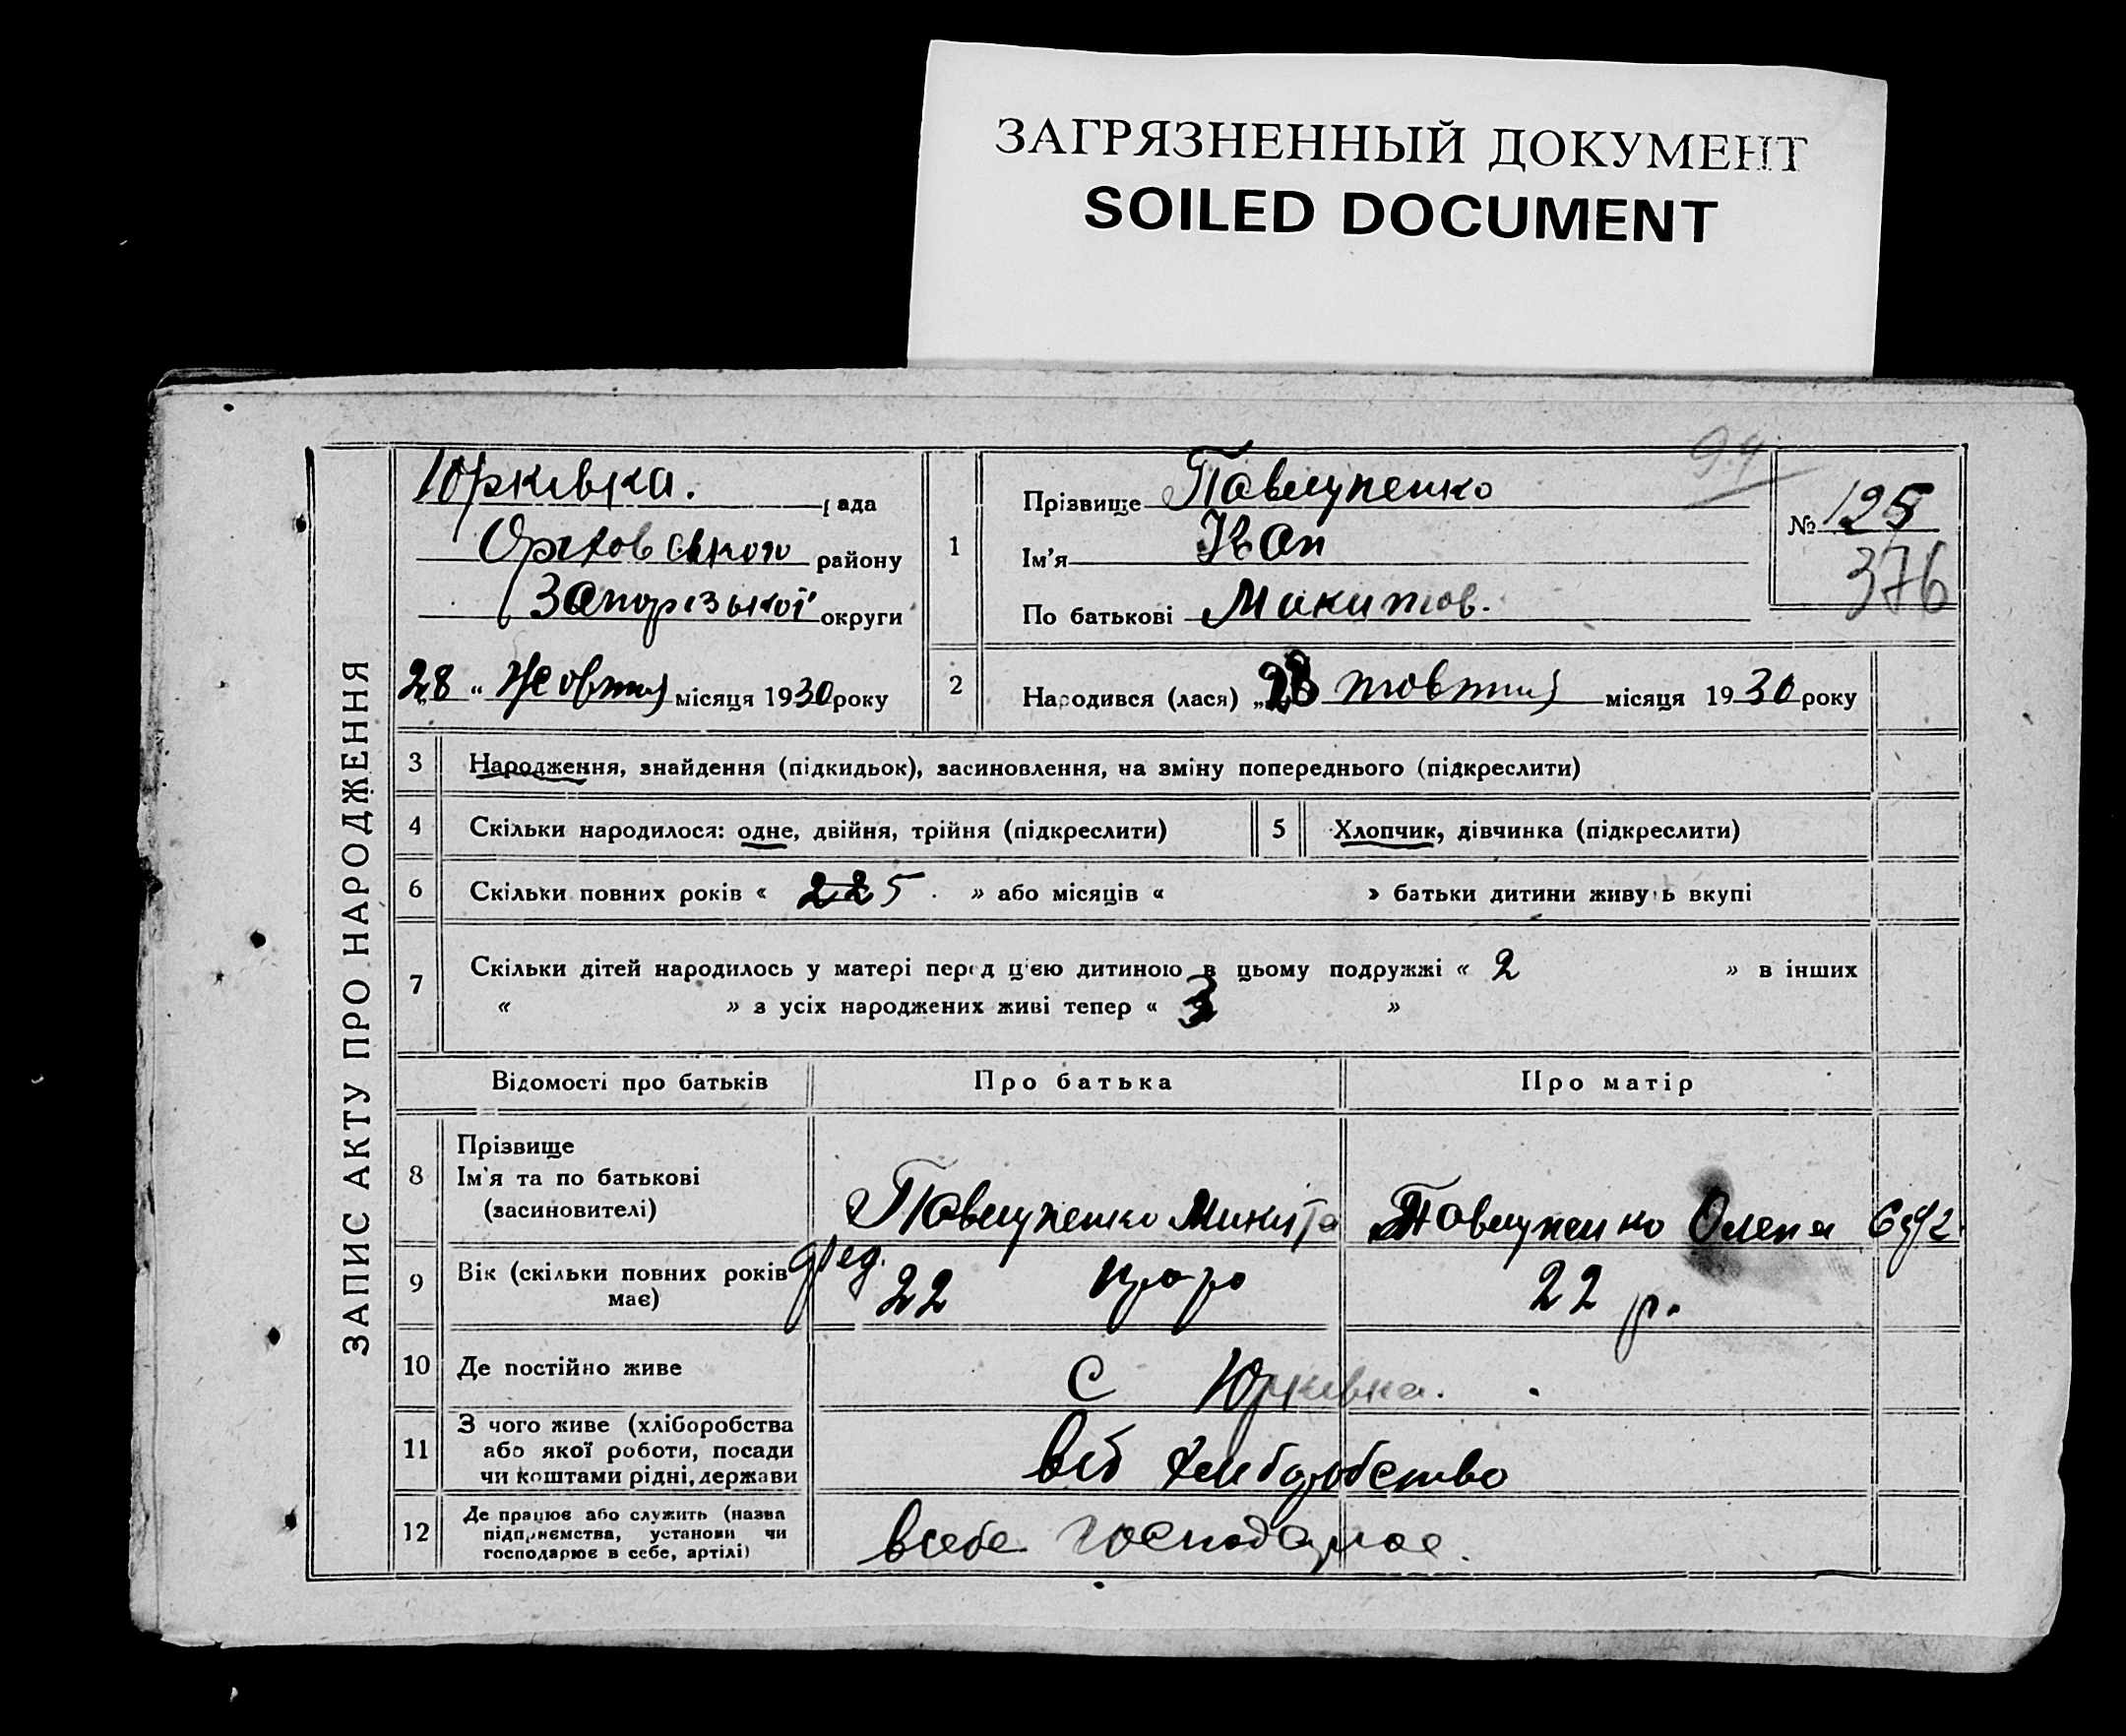 ЗАГРЯЗНЕННЫЙ ДОКУМЕНТ
SOILED DOCUMENT
ЗАПИС АКТУ ПРО НАРОДЖЕННЯ
Юрківка. рада
Оріховського району
Запорізької округи
„28 “ Жовтня місяця 1930 року
1
Прізвище Павлупенко
Ім'я Іван
По батькові Микитов.
94
№ 125
376
2 Народився (лася) „28 жовтня місяця 1930 року
3 Народження, знайдення (підкидьок), засиновлення, на зміну попереднього (підкреслити)
4 Скільки народилося: одне, двійня, трійня (підкреслити) 5 Хлопчик, дівчинка (підкреслити)
6 Скільки повних років « 22 5 . » або місяців « » батьки дитини живуть вкупі
7 Скільки дітей народилось у матері перед цією дитиною в цьому подружжі « 2 » в інших
« » з усіх народжених живі тепер « 3 »
Відомості про батьків Про батька Про матір
8 Прізвище
Ім'я та по батькові
(засиновителі)
Павлупенко Микита Павлупенко Олена
9 Вік (скільки повних років
має)
22 22 р.
10 Де постійно живе С Юрківка.
11 З чого живе (хліборобства
або якої роботи, посади
чи коштами рідні, держави
від хліборобство
12 Де працює або служить (назва
підприємства, установи чи
господарює в себе, артілі)
всебе господарює.